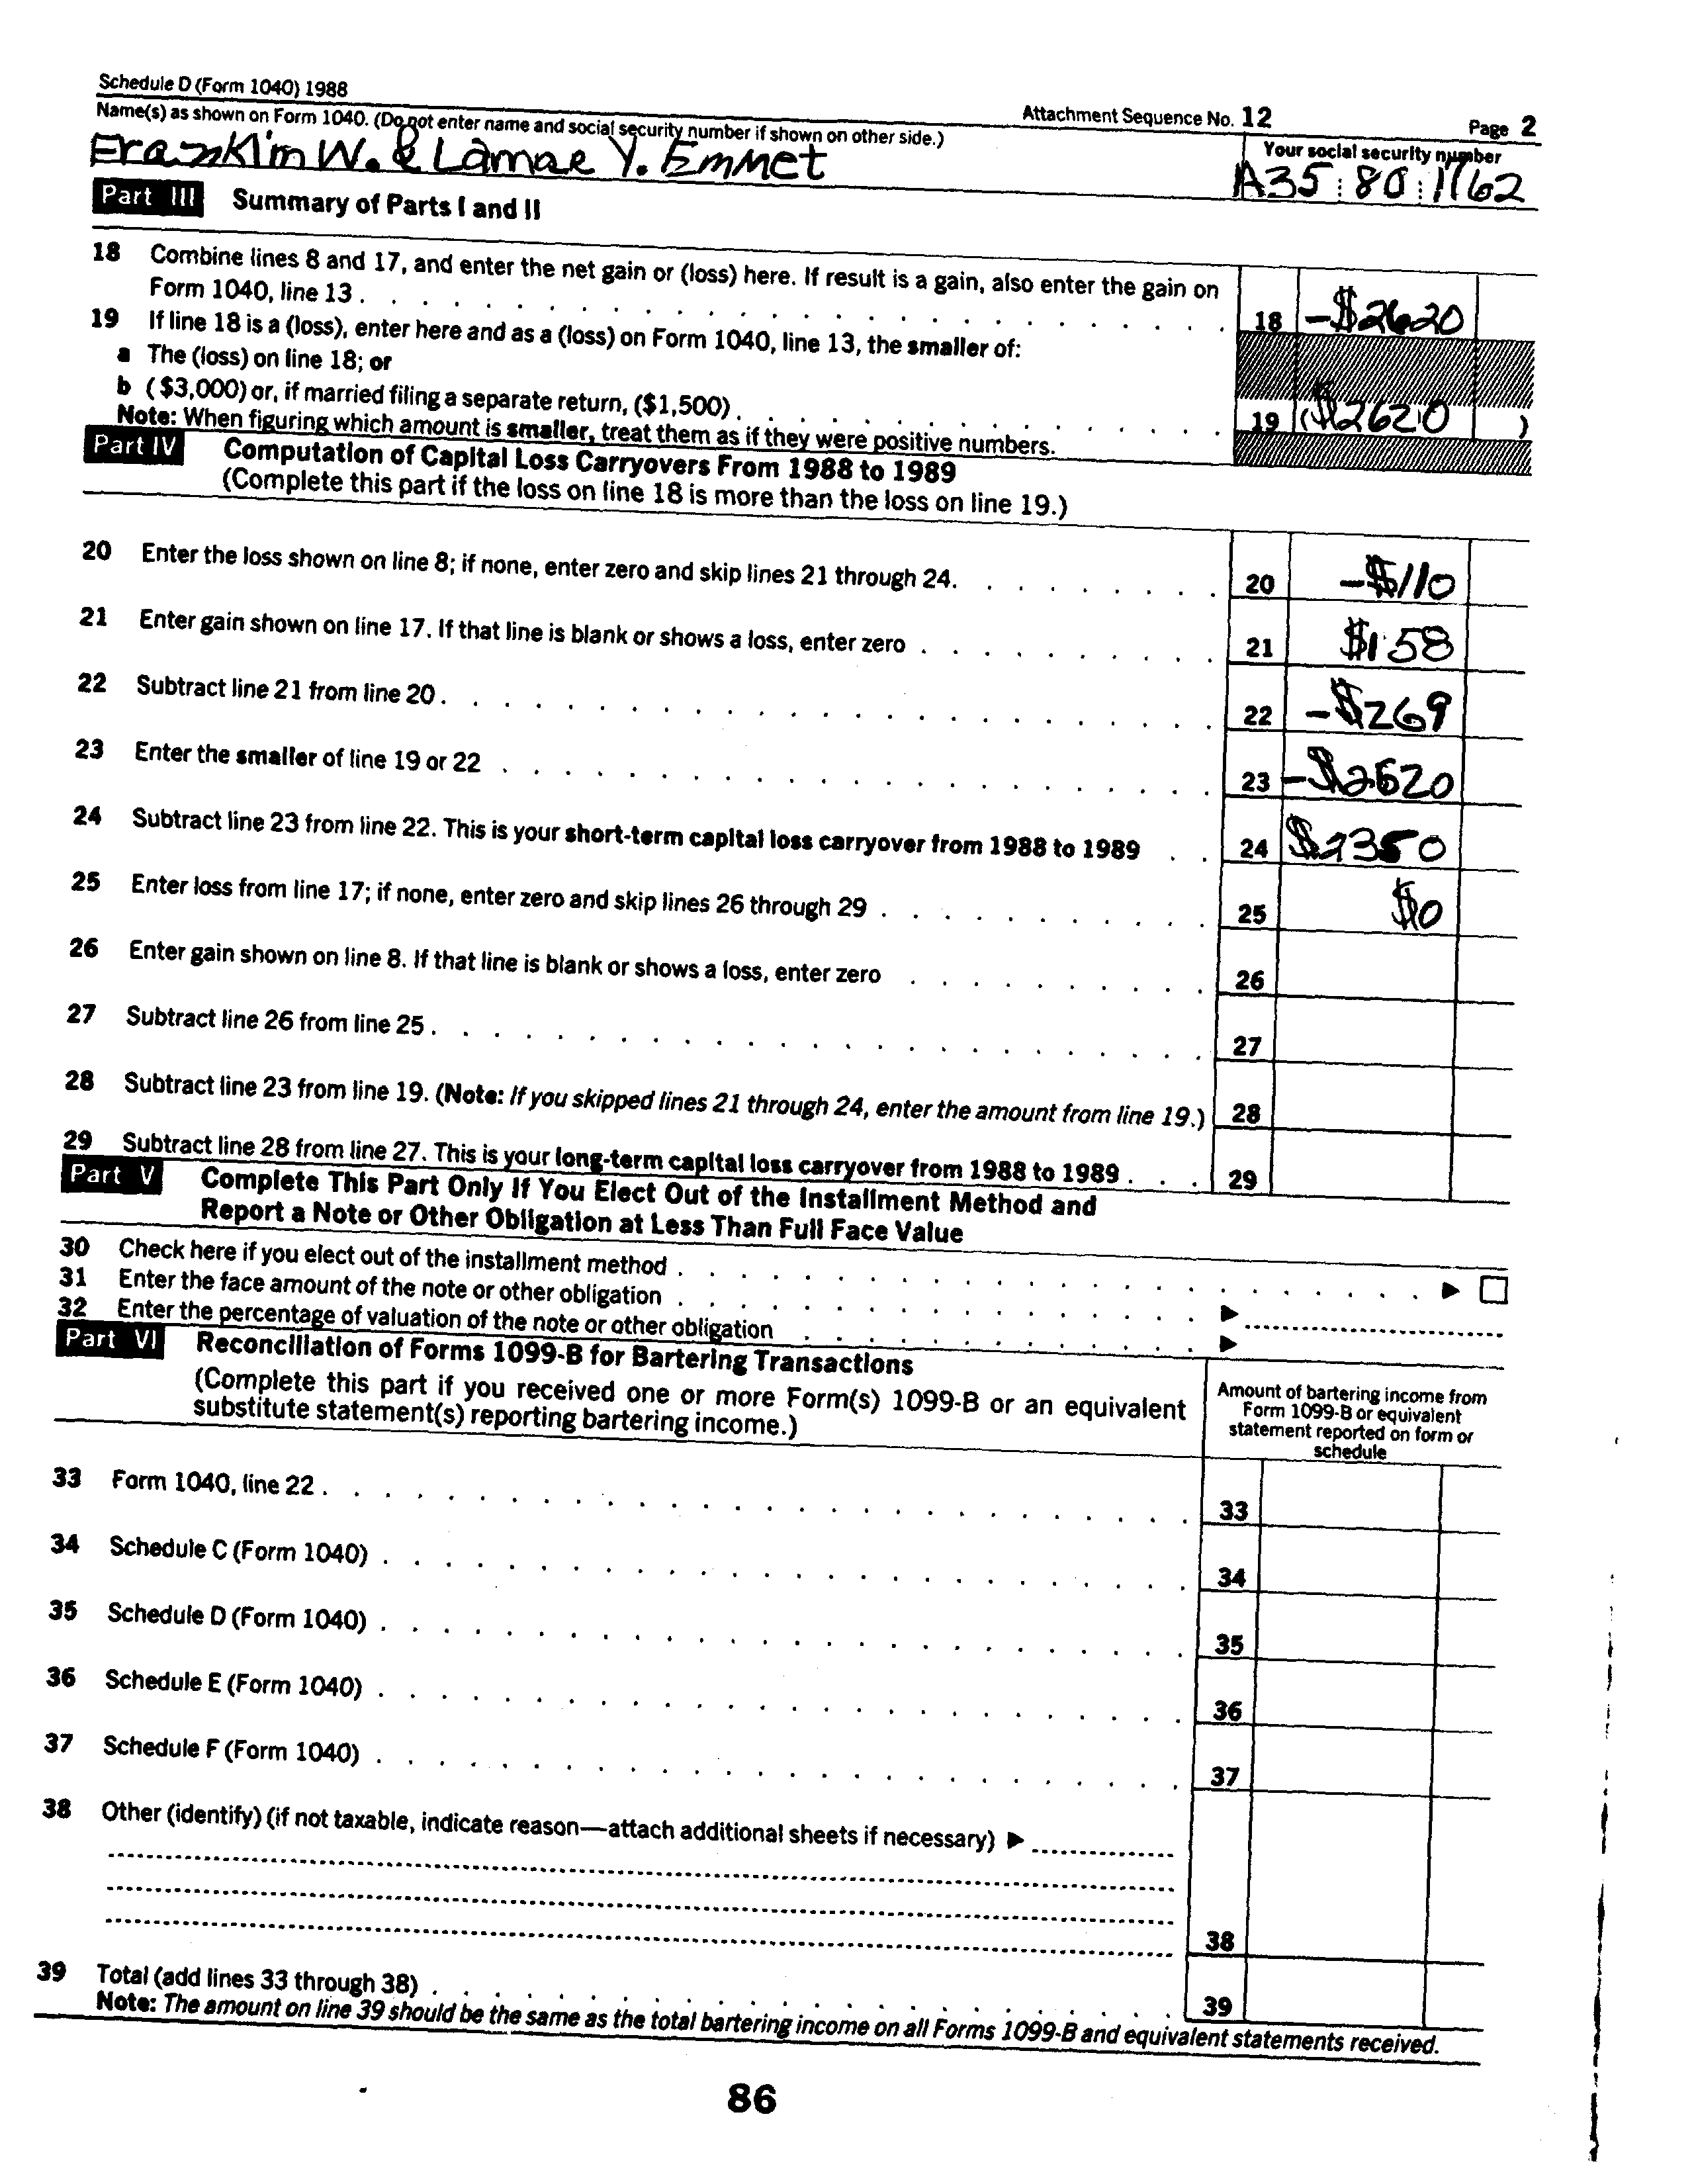 Schedule D (Form 1040) 1988
Attachment Sequence No. 12
Page 2
Name(s) as shown on Form 1040. (Do not enter name and social security number if shown on other side.)
Your social security number
Franklin W. & Lamae Y. Emmet
A35 80 1762
Part III Summary of Parts I and II
18 Combine lines 8 and 17, and enter the net gain or (loss) here. If result is a gain, also enter the gain on
Form 1040, line 13 . 18 -$2620
19 If line 18 is a (loss), enter here and as a (loss) on Form 1040, line 13, the smaller of:
a The (loss) on line 18; or
b ($3,000) or, if married filing a separate return, ($1,500) . 19 ($2620)
Note: When figuring which amount is smaller, treat them as if they were positive numbers.
Part IV Computation of Capital Loss Carryovers From 1988 to 1989
(Complete this part if the loss on line 18 is more than the loss on line 19.)
20 Enter the loss shown on line 8; if none, enter zero and skip lines 21 through 24. 20 -$110
21 Enter gain shown on line 17. If that line is blank or shows a loss, enter zero . 21 $158
22 Subtract line 21 from line 20 . 22 -$269
23 Enter the smaller of line 19 or 22 . 23 -$2620
24 Subtract line 23 from line 22. This is your short-term capital loss carryover from 1988 to 1989 . 24 $2350
25 Enter loss from line 17; if none, enter zero and skip lines 26 through 29 . 25 $0
26 Enter gain shown on line 8. If that line is blank or shows a loss, enter zero . 26
27 Subtract line 26 from line 25 . 27
28 Subtract line 23 from line 19. (Note: If you skipped lines 21 through 24, enter the amount from line 19.) 28
29 Subtract line 28 from line 27. This is your long-term capital loss carryover from 1988 to 1989 . 29
Part V Complete This Part Only If You Elect Out of the Installment Method and
Report a Note or Other Obligation at Less Than Full Face Value
30 Check here if you elect out of the installment method . ▶ □
31 Enter the face amount of the note or other obligation . ▶
32 Enter the percentage of valuation of the note or other obligation . ▶
Part VI Reconciliation of Forms 1099-B for Bartering Transactions
(Complete this part if you received one or more Form(s) 1099-B or an equivalent
substitute statement(s) reporting bartering income.)
Amount of bartering income from
Form 1099-B or equivalent
statement reported on form or
schedule
33 Form 1040, line 22 . 33
34 Schedule C (Form 1040) . 34
35 Schedule D (Form 1040) . 35
36 Schedule E (Form 1040) . 36
37 Schedule F (Form 1040) . 37
38 Other (identify) (if not taxable, indicate reason—attach additional sheets if necessary) ▶
38
39 Total (add lines 33 through 38) . 39
Note: The amount on line 39 should be the same as the total bartering income on all Forms 1099-B and equivalent statements received.
86